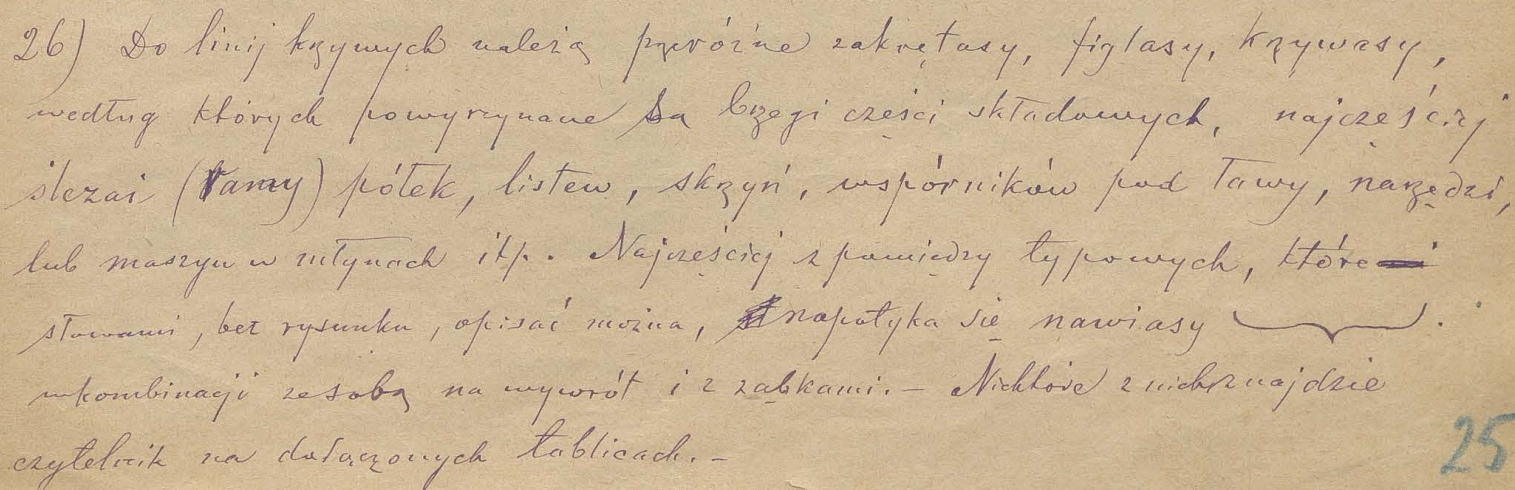 26) Do linij krzywych należą przeróżne zakrętasy, figlasy, krzywasy,
według których powyrzynane są brzegi części składowych, najcześciej
ślezai (ramy) półek, listew, skrzyń, wspórników pod ławy, narzędzi,
lub maszyn w młynach itp. Najczęściej z pomiędzy typowych, które
słowami, bez rysunku, opisać można, napotyka się nawiasy
w kombinacji ze sobą na wywrót i z ząbkami. – Niektóre z nich znajdzie
czytelnik na dołączonych tablicach. –
25